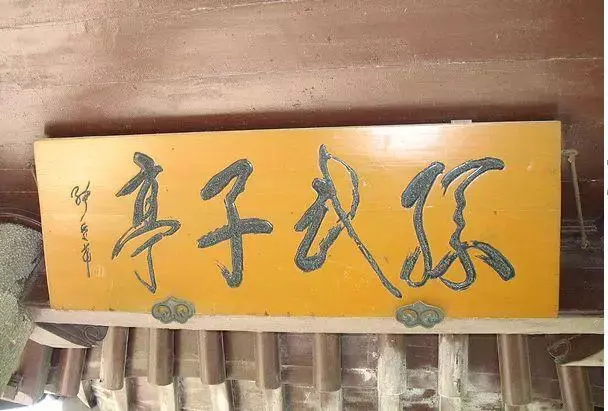 孫武子亭